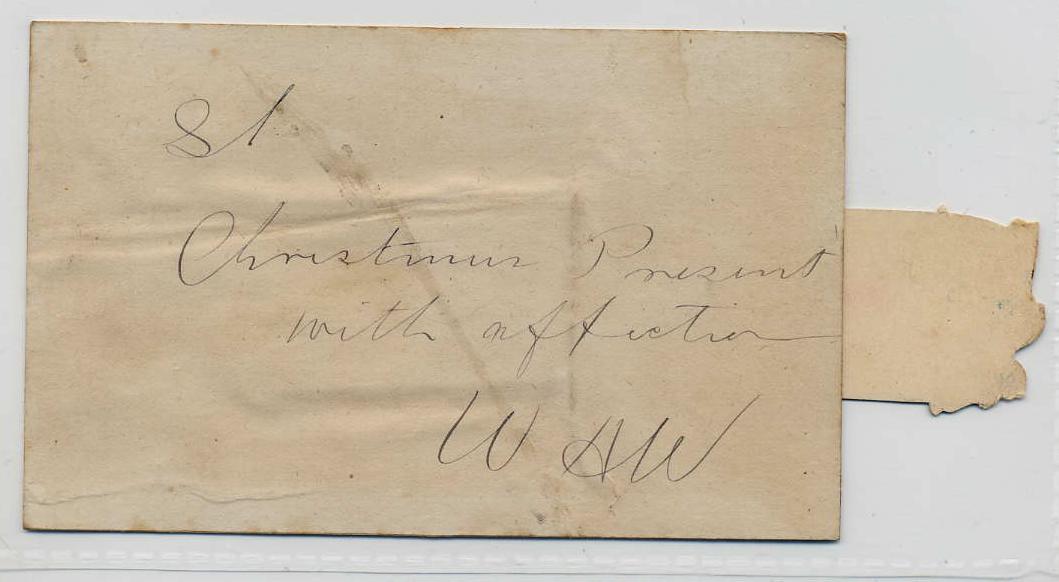 Christmas Present
with affection
W H W